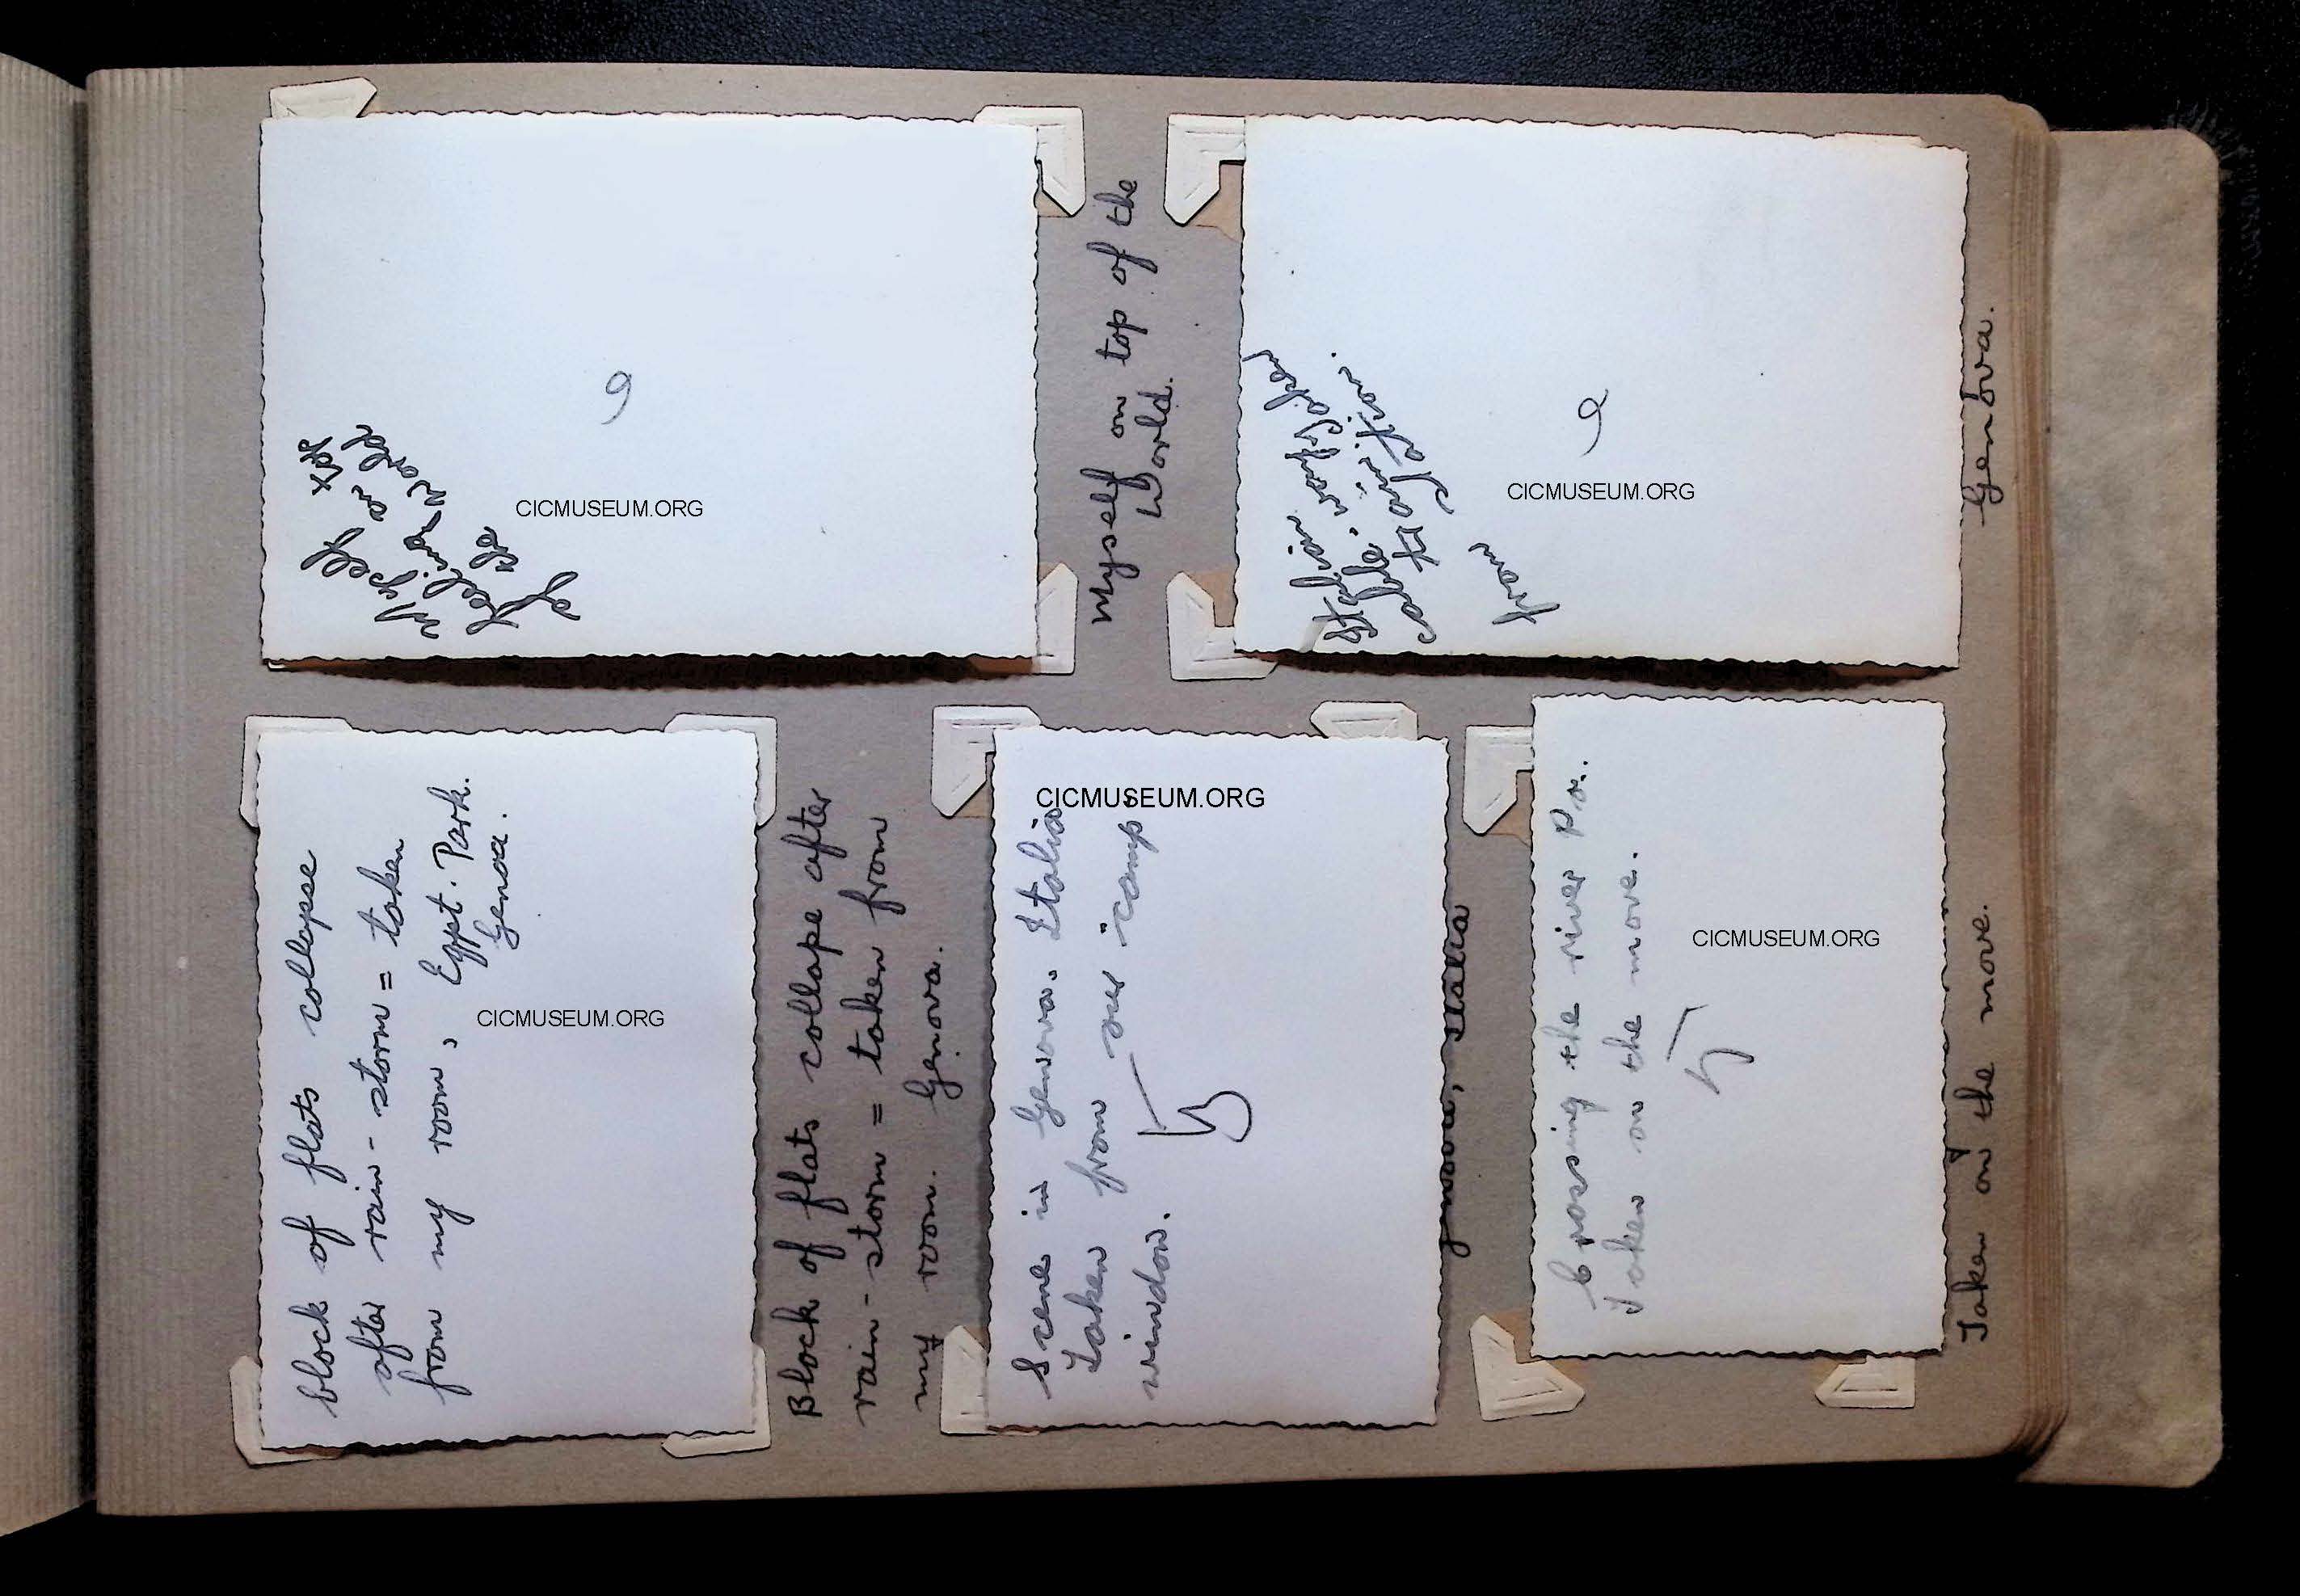 block of flats collapse
after rain-storm = taken
from my room, Egpt. Park.
Genoa.
CICMUSEUM.ORG
Block of flats collape after
rain-storm = taken from
my room. Genova.
Scene in Genova. Italia
Taken from our camp
window.
CICMUSEUM.ORG
Italia
Crossing the river Po.
Taken on the move.
CICMUSEUM.ORG
Taken on the move.
Myself on top
feeling
of the World
9
CICMUSEUM.ORG
Myself on top of the
World.
Italian taken
cable.
train station.
from
9
CICMUSEUM.ORG
Genova.